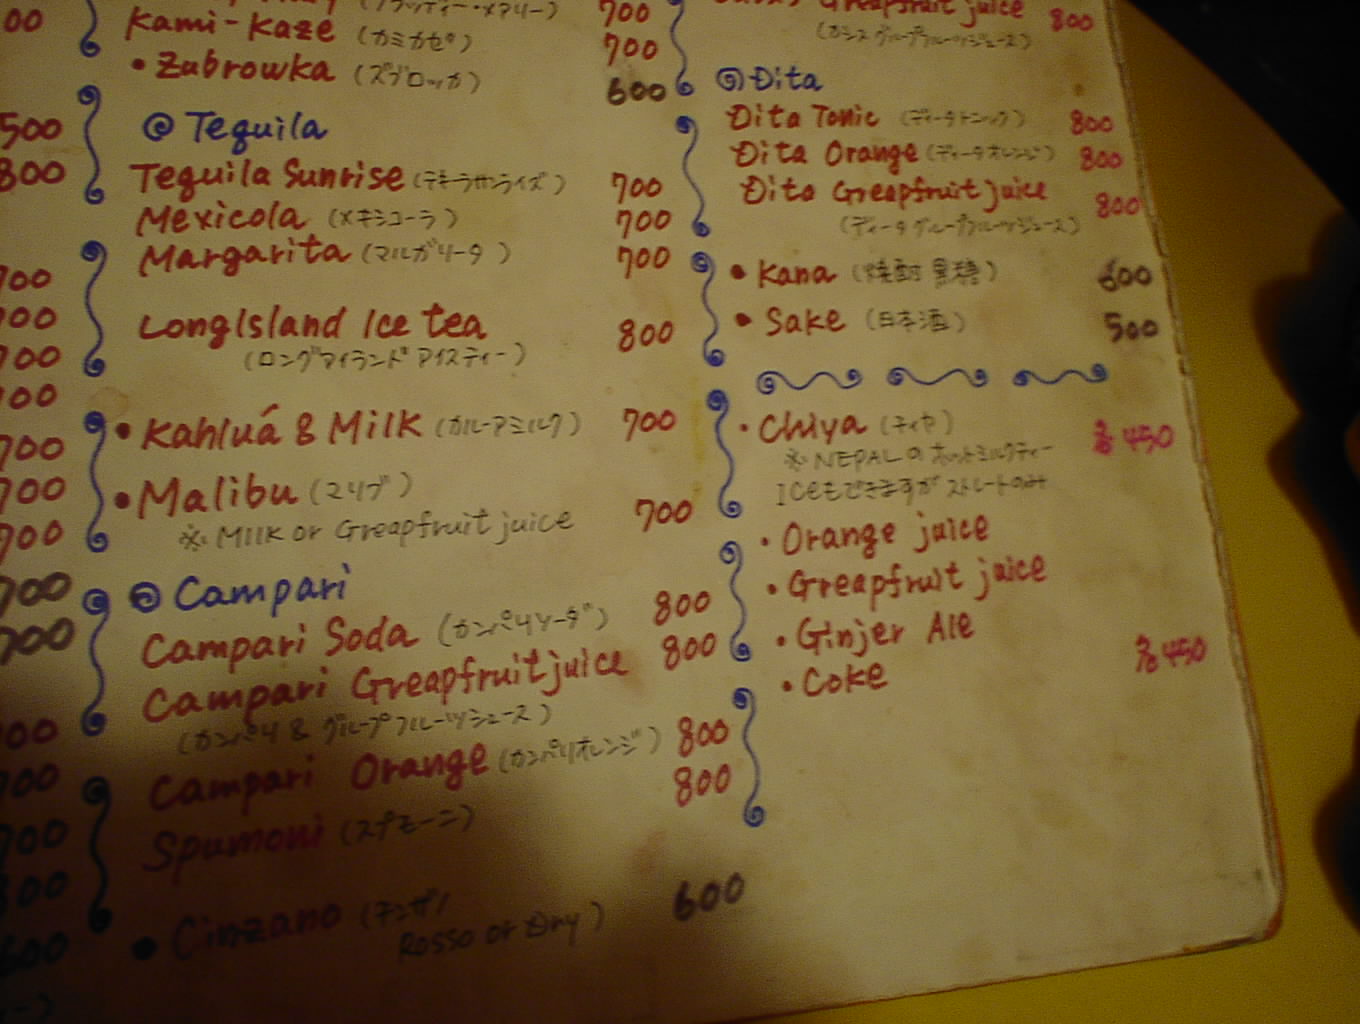 00
500
800
700
700
700
700
700
700
700
700
700
00
700
700
800
600
700
Kami-Kaze (カミカゼ) 700
• Zubrowka (ズブロッカ) 600
Tequila
Tequila Sunrise (テキーラサンライズ) 700
Mexicola (メキシコーラ) 700
Margarita (マルガリータ) 700
LongIsland Ice tea 800
(ロングアイランドアイスティー)
• Kahluá & Milk (カルーアミルク) 700
• Malibu (マリブ)
※ Milk or Greapfruit juice 700
Campari
Campari Soda (カンパリソーダ) 800
Campari Greapfruit juice 800
(カンパリ & グループフルーツジュース)
Campari Orange (カンパリオレンジ) 800
Spumoni (スプモーニ) 800
• Cinzano (チンザノ 600
Rosso or Dry)
Greapfruit juice 800
(カシスグループフルーツジュース)
Dita
Dita Tonic (ディータトニック) 800
Dita Orange (ディータオレンジ) 800
Dita Greapfruit juice 800
(ディータグループフルーツジュース)
• Kana (焼酎 黒糖) 600
• Sake (日本酒) 500
• Chiya (チィヤ) 各450
※ NEPALのホットミルクティー
ICEもできますがストレートのみ
• Orange juice
• Greapfruit juice
• Ginjer Ale
• Coke 各450